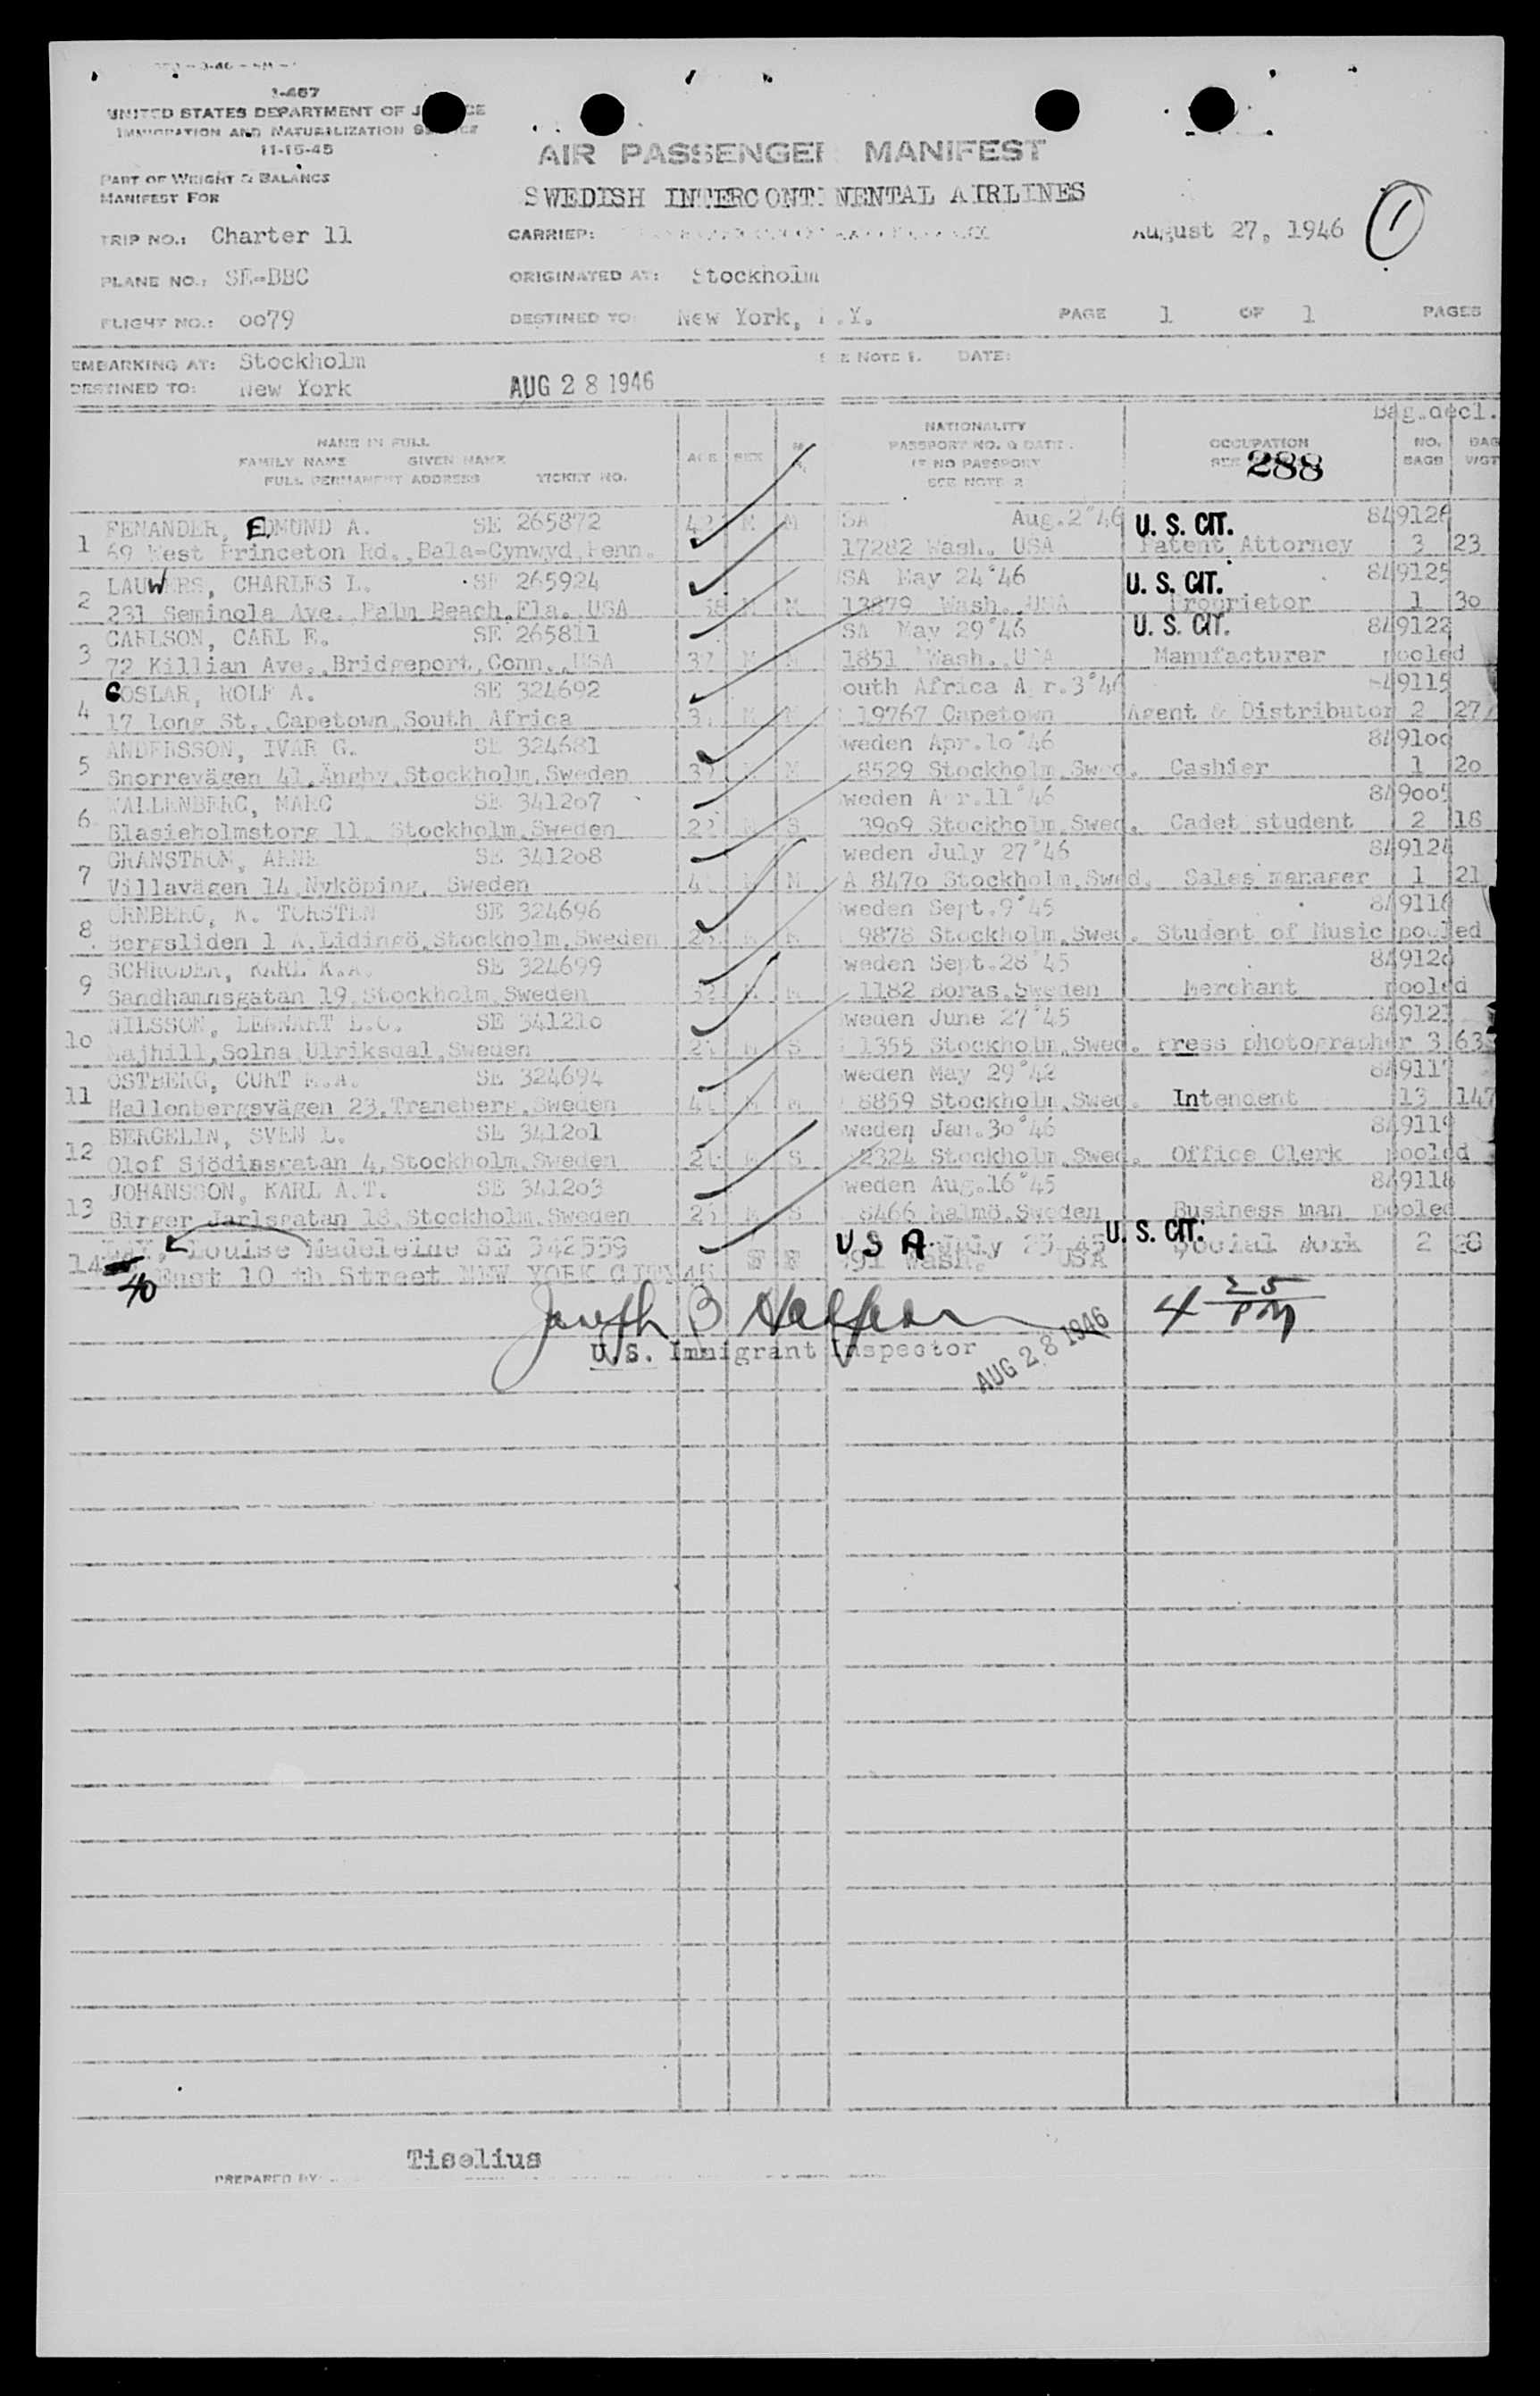 I-467
UNITED STATES DEPARTMENT OF JUSTICE
IMMIGRATION AND NATURALIZATION SERVICE
11-15-45
AIR PASSENGER MANIFEST
PART OF WEIGHT & BALANCE
MANIFEST FOR
SWEDISH INTERCONTINENTAL AIRLINES
TRIP NO.: Charter 11 CARRIER: August 27, 1946 1
PLANE NO.: SE-BBC ORIGINATED AT: Stockholm
FLIGHT NO.: oo79 DESTINED TO: New York, N.Y. PAGE 1 OF 1 PAGES
EMBARKING AT: Stockholm SEE NOTE 1. DATE:
DESTINED TO: New York AUG 28 1946
Bag.decl.
NAME IN FULL
FAMILY NAME GIVEN NAME
FULL PERMANENT ADDRESS TICKET NO. AGE SEX
NATIONALITY
PASSPORT NO. & DATE.
IF NO PASSPORT
SEE NOTE 2
OCCUPATION
SEE 288
NO. BAGS BAG WGT
FENANDER, EDMUND A. SE 265872 42 M M SA Aug.2"46 U. S. CIT. 849126
1 69 West Princeton Rd.,Bala-Cynwyd,Penn. 17282 Wash. USA Patent Attorney 3 23
LAUWERS, CHARLES L. SE 265924 SA May 24"46 U. S. CIT. 849125
2 231 Seminola Ave. Palm Beach.Fla. USA 58 M M 13879 Wash. USA Proprietor 1 3o
CARLSON, CARL E. SE 265811 SA May 29"46 U. S. CIT. 849122
3 72 Killian Ave.,Bridgeport,Conn.,USA 37 M M 1851 Wash. USA Manufacturer pooled
GOSLAR, ROLF A. SE 324692 outh Africa A r.3"46 49115
4 17 Long St.,Capetown,South Africa M 19767 Capetown Agent & Distributor 2 27
ANDERSSON, IVAR G. SE 324681 weden Apr.1o"46 8491oo
5 Snorrevägen 41,Ängby,Stockholm,Sweden M M 8529 Stockholm,Swed. Cashier 1 2o
WALLENBERG, MARC SE 3412o7 weden A r.11"46 849oo5
6 Blasieholmstorg 11, Stockholm,Sweden 22 M S 39o9 Stockholm,Swed. Cadet student 2 18
GRANSTROM, ARNE SE 3412o8 weden July 27"46 849124
7 Villavägen 14,Nyköping, Sweden M M A 847o Stockholm,Swed. Sales manager 1 21
ORNBERG, K. TORSTEN SE 324696 weden Sept.9"45 849116
8 Bergsliden 1 A,Lidingö,Stockholm,Sweden M M 9878 Stockholm,Swed. Student of Music pooled
SCHRODER, KARL K.A. SE 324699 weden Sept.28"45 84912o
9 Sandhamnsgatan 19,Stockholm,Sweden M M 1182 Boras,Sweden Merchant pooled
NILSSON, LENNART L.G. SE 34121o weden June 27"45 849121
1o Majhill,Solna,Ulriksdal,Sweden M S 1355 Stockholm,Swed. Press photographer 3 63
OSTBERG, CURT SE 324694 weden May 29"42 849117
11 Hallonbergsvägen 23,Traneberg,Sweden M M 8859 Stockholm,Swed. Intendent 13 147
BERGELIN, SVEN L. SE 3412o1 weden Jan.3o"46 849119
12 Olof Sjödinsgatan 4,Stockholm,Sweden M S 2324 Stockholm,Swed. Office Clerk pooled
JOHANSSON, KARL A.T. SE 3412o3 weden Aug.16"45 849118
13 Birger Jarlsgatan 18,Stockholm,Sweden M S 8466 Malmö,Sweden Business man pooled
14 Louise Madeleine SE 342559 F F U S A July 23 45 U. S. CIT. Social Work 2 28
40 East 10 th Street NEW YORK CITY 491 Wash. USA
Joseph B Halpern 4 25 PM
U.S. Immigrant Inspector AUG 28 1946
PREPARED BY Tiselius